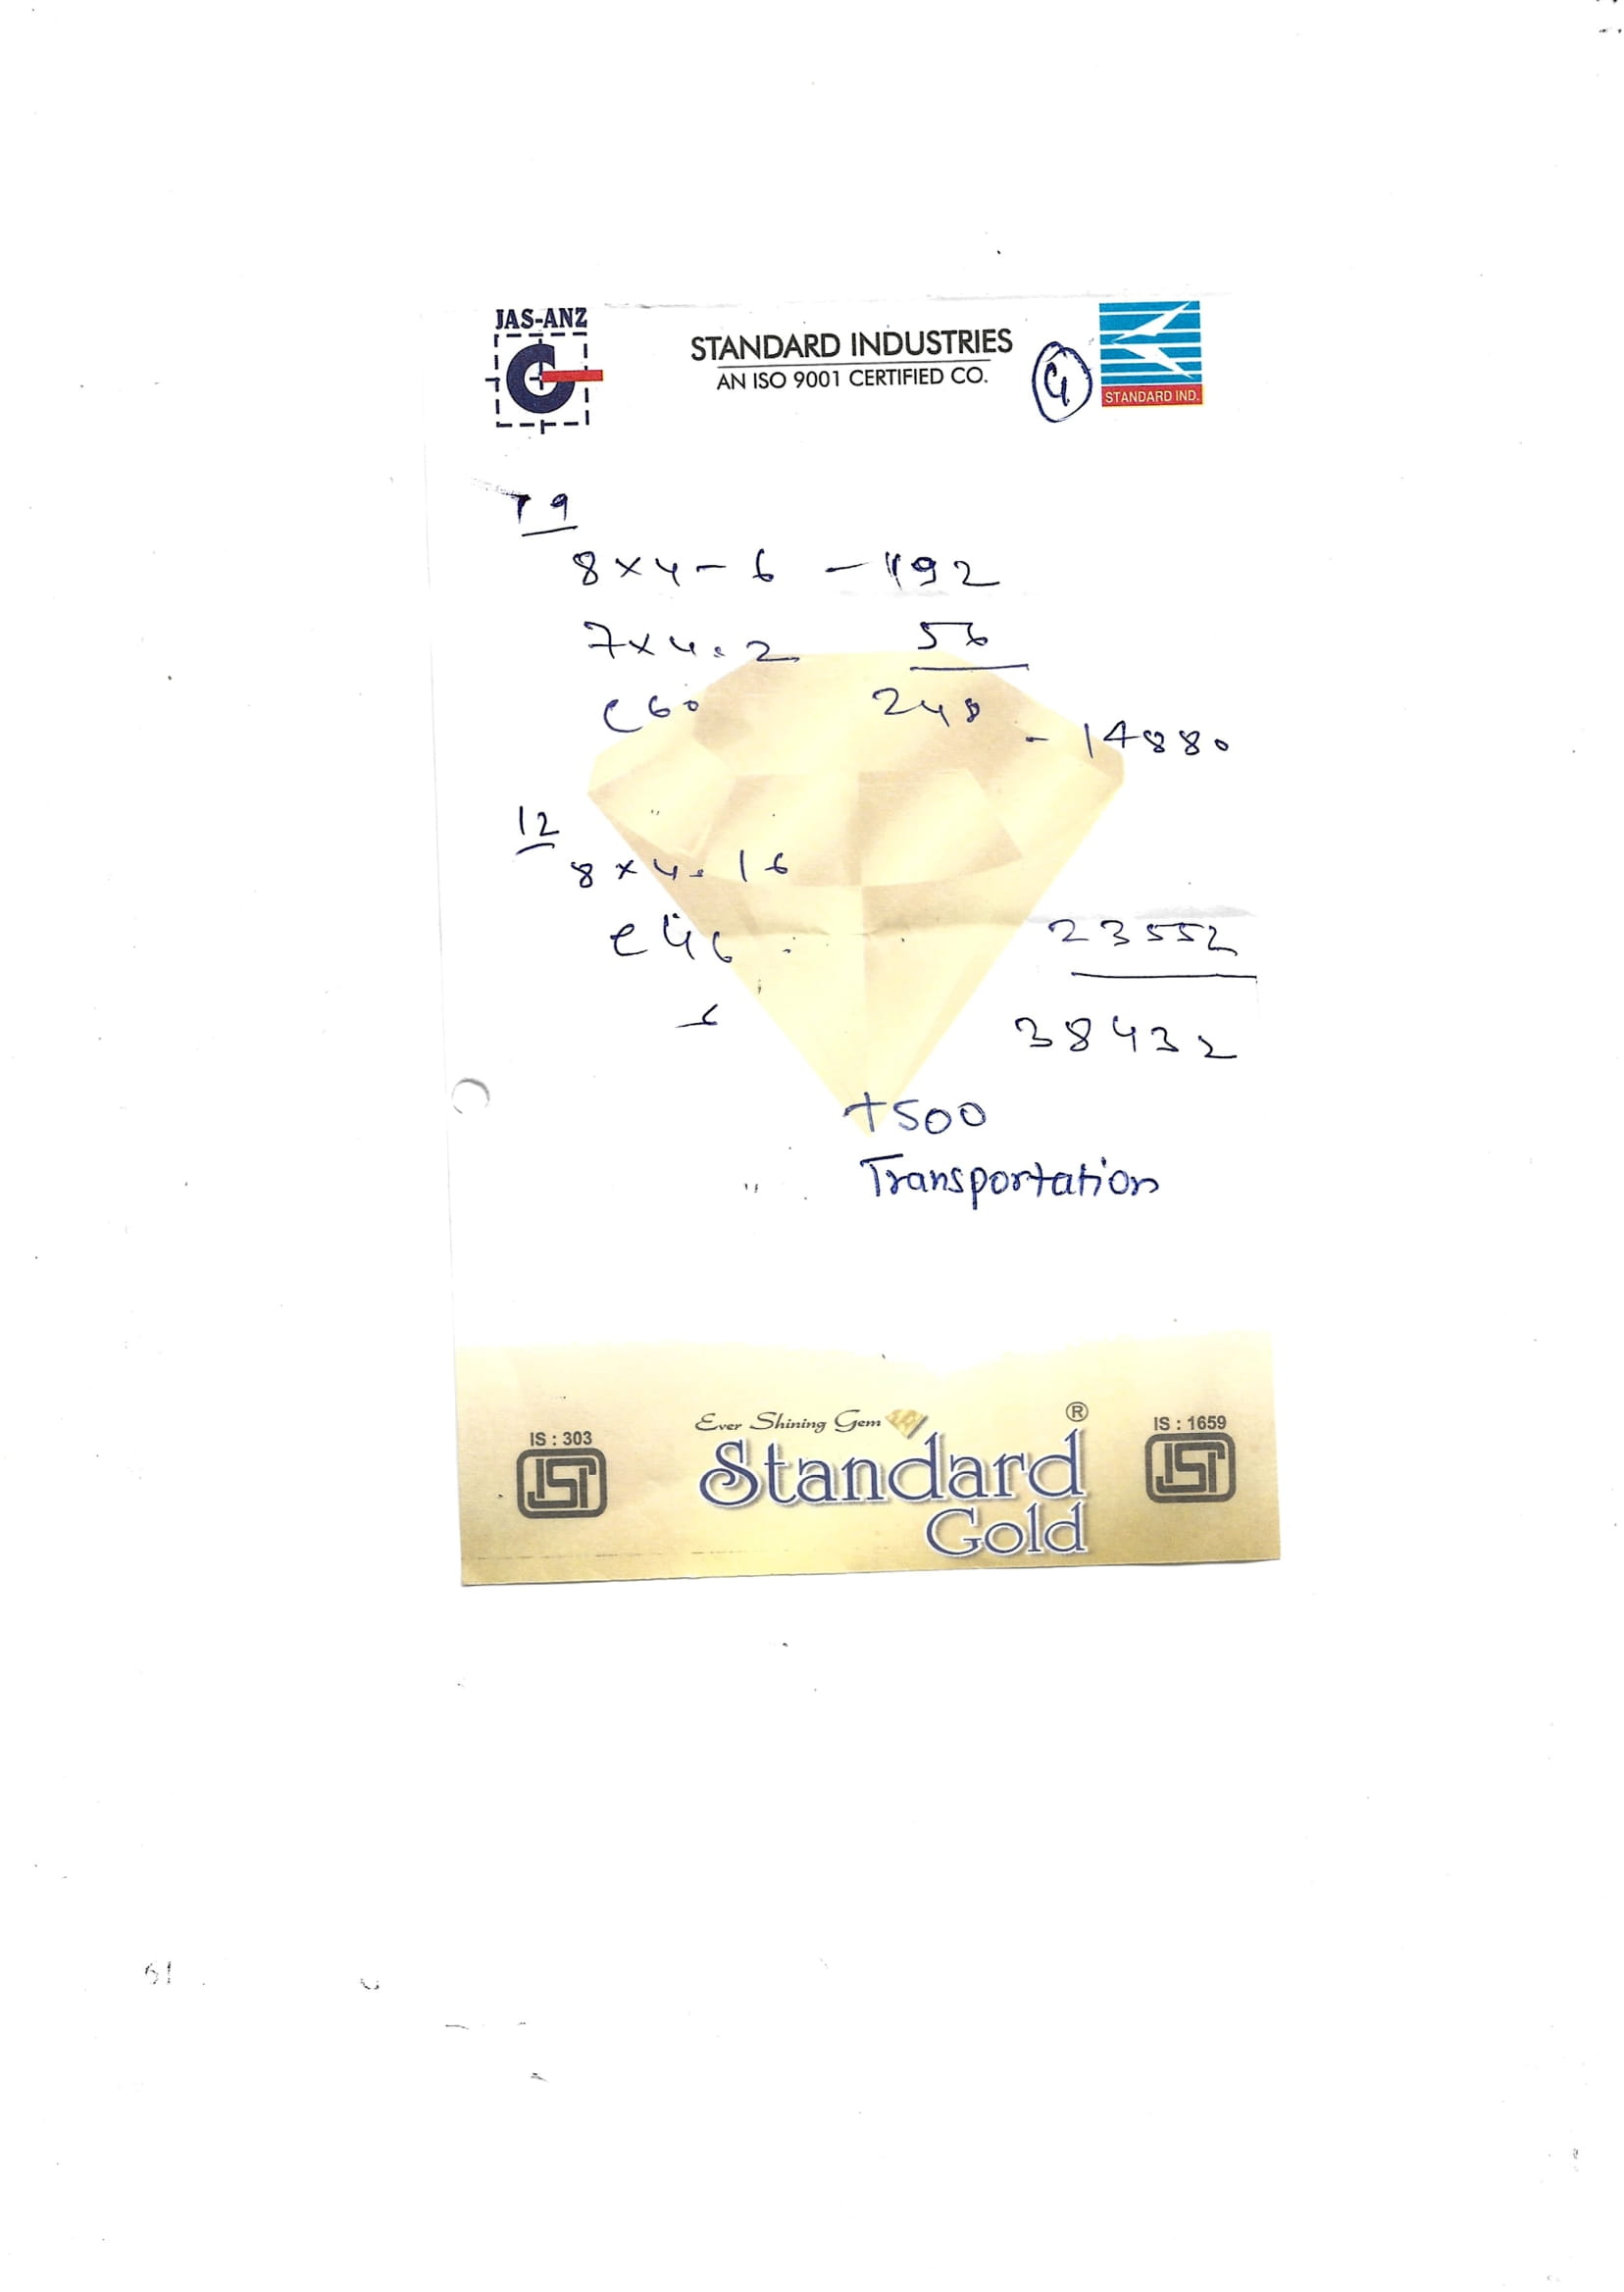 JAS-ANZ
STANDARD INDUSTRIES
AN ISO 9001 CERTIFIED CO.
STANDARD IND.
19
8 x 4 - 6 - 192
7 x 4 . 2 56
@ 60 248
- 14880
12
8 x 4 . 16
@ 46 : 23552
38432
+500
Transportation
IS : 303
Ever Shining Gem
®
IS : 1659
Standard
Gold